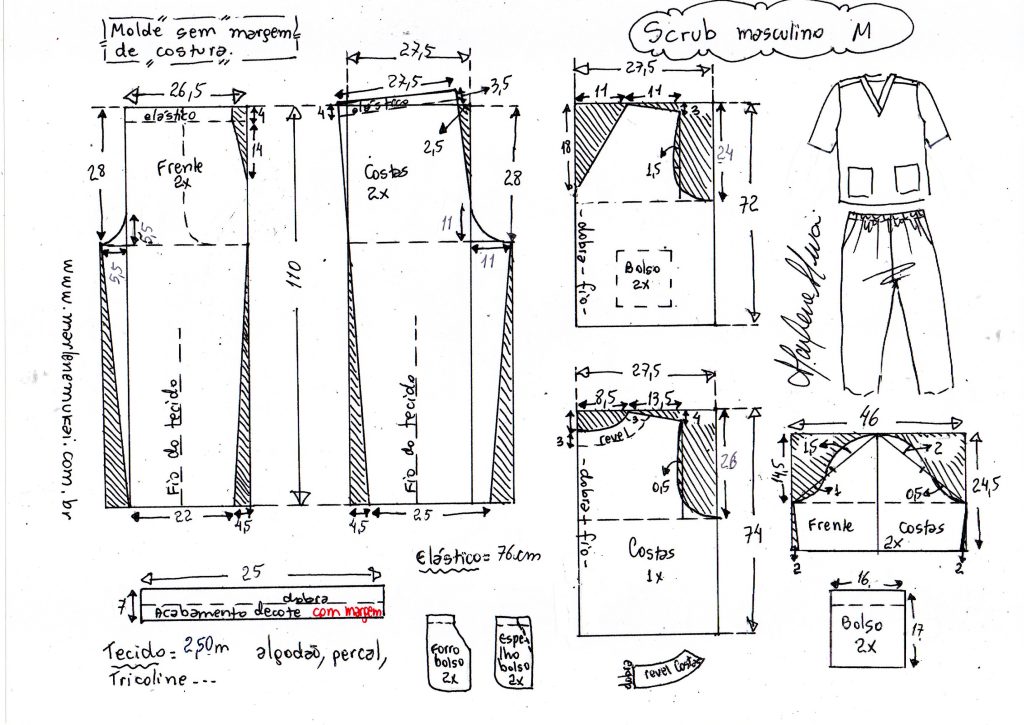 Molde sem margem
de costura.
Scrub masculino M
26,5
elástico
4
14
28
Frente
2x
5,5
22
4,5
Fio do tecido
110
27,5
27,5
3,5
4
elástico
2,5
Costas
2x
28
11
11
Fio do tecido
4,5
25
27,5
11
11
3
18
1,5
24
72
dobra - fio
Bolso
2x
27,5
8,5
13,5
3
3
4
revel
0,5
26
74
dobra + fio
Costas
1x
Marlene Mukai
46
14,5
1,5
2
1
0,5
24,5
Frente
Costas
2x
2
2
16
Bolso
2x
17
www.marlenemukai.com.br
Elástico = 76 cm
25
7
dobra
Acabamento decote com margem
Tecido = 2,50m algodão, percal,
Tricoline ---
Forro
bolso
2x
Espe-
lho
bolso
2x
dobra
revel costas